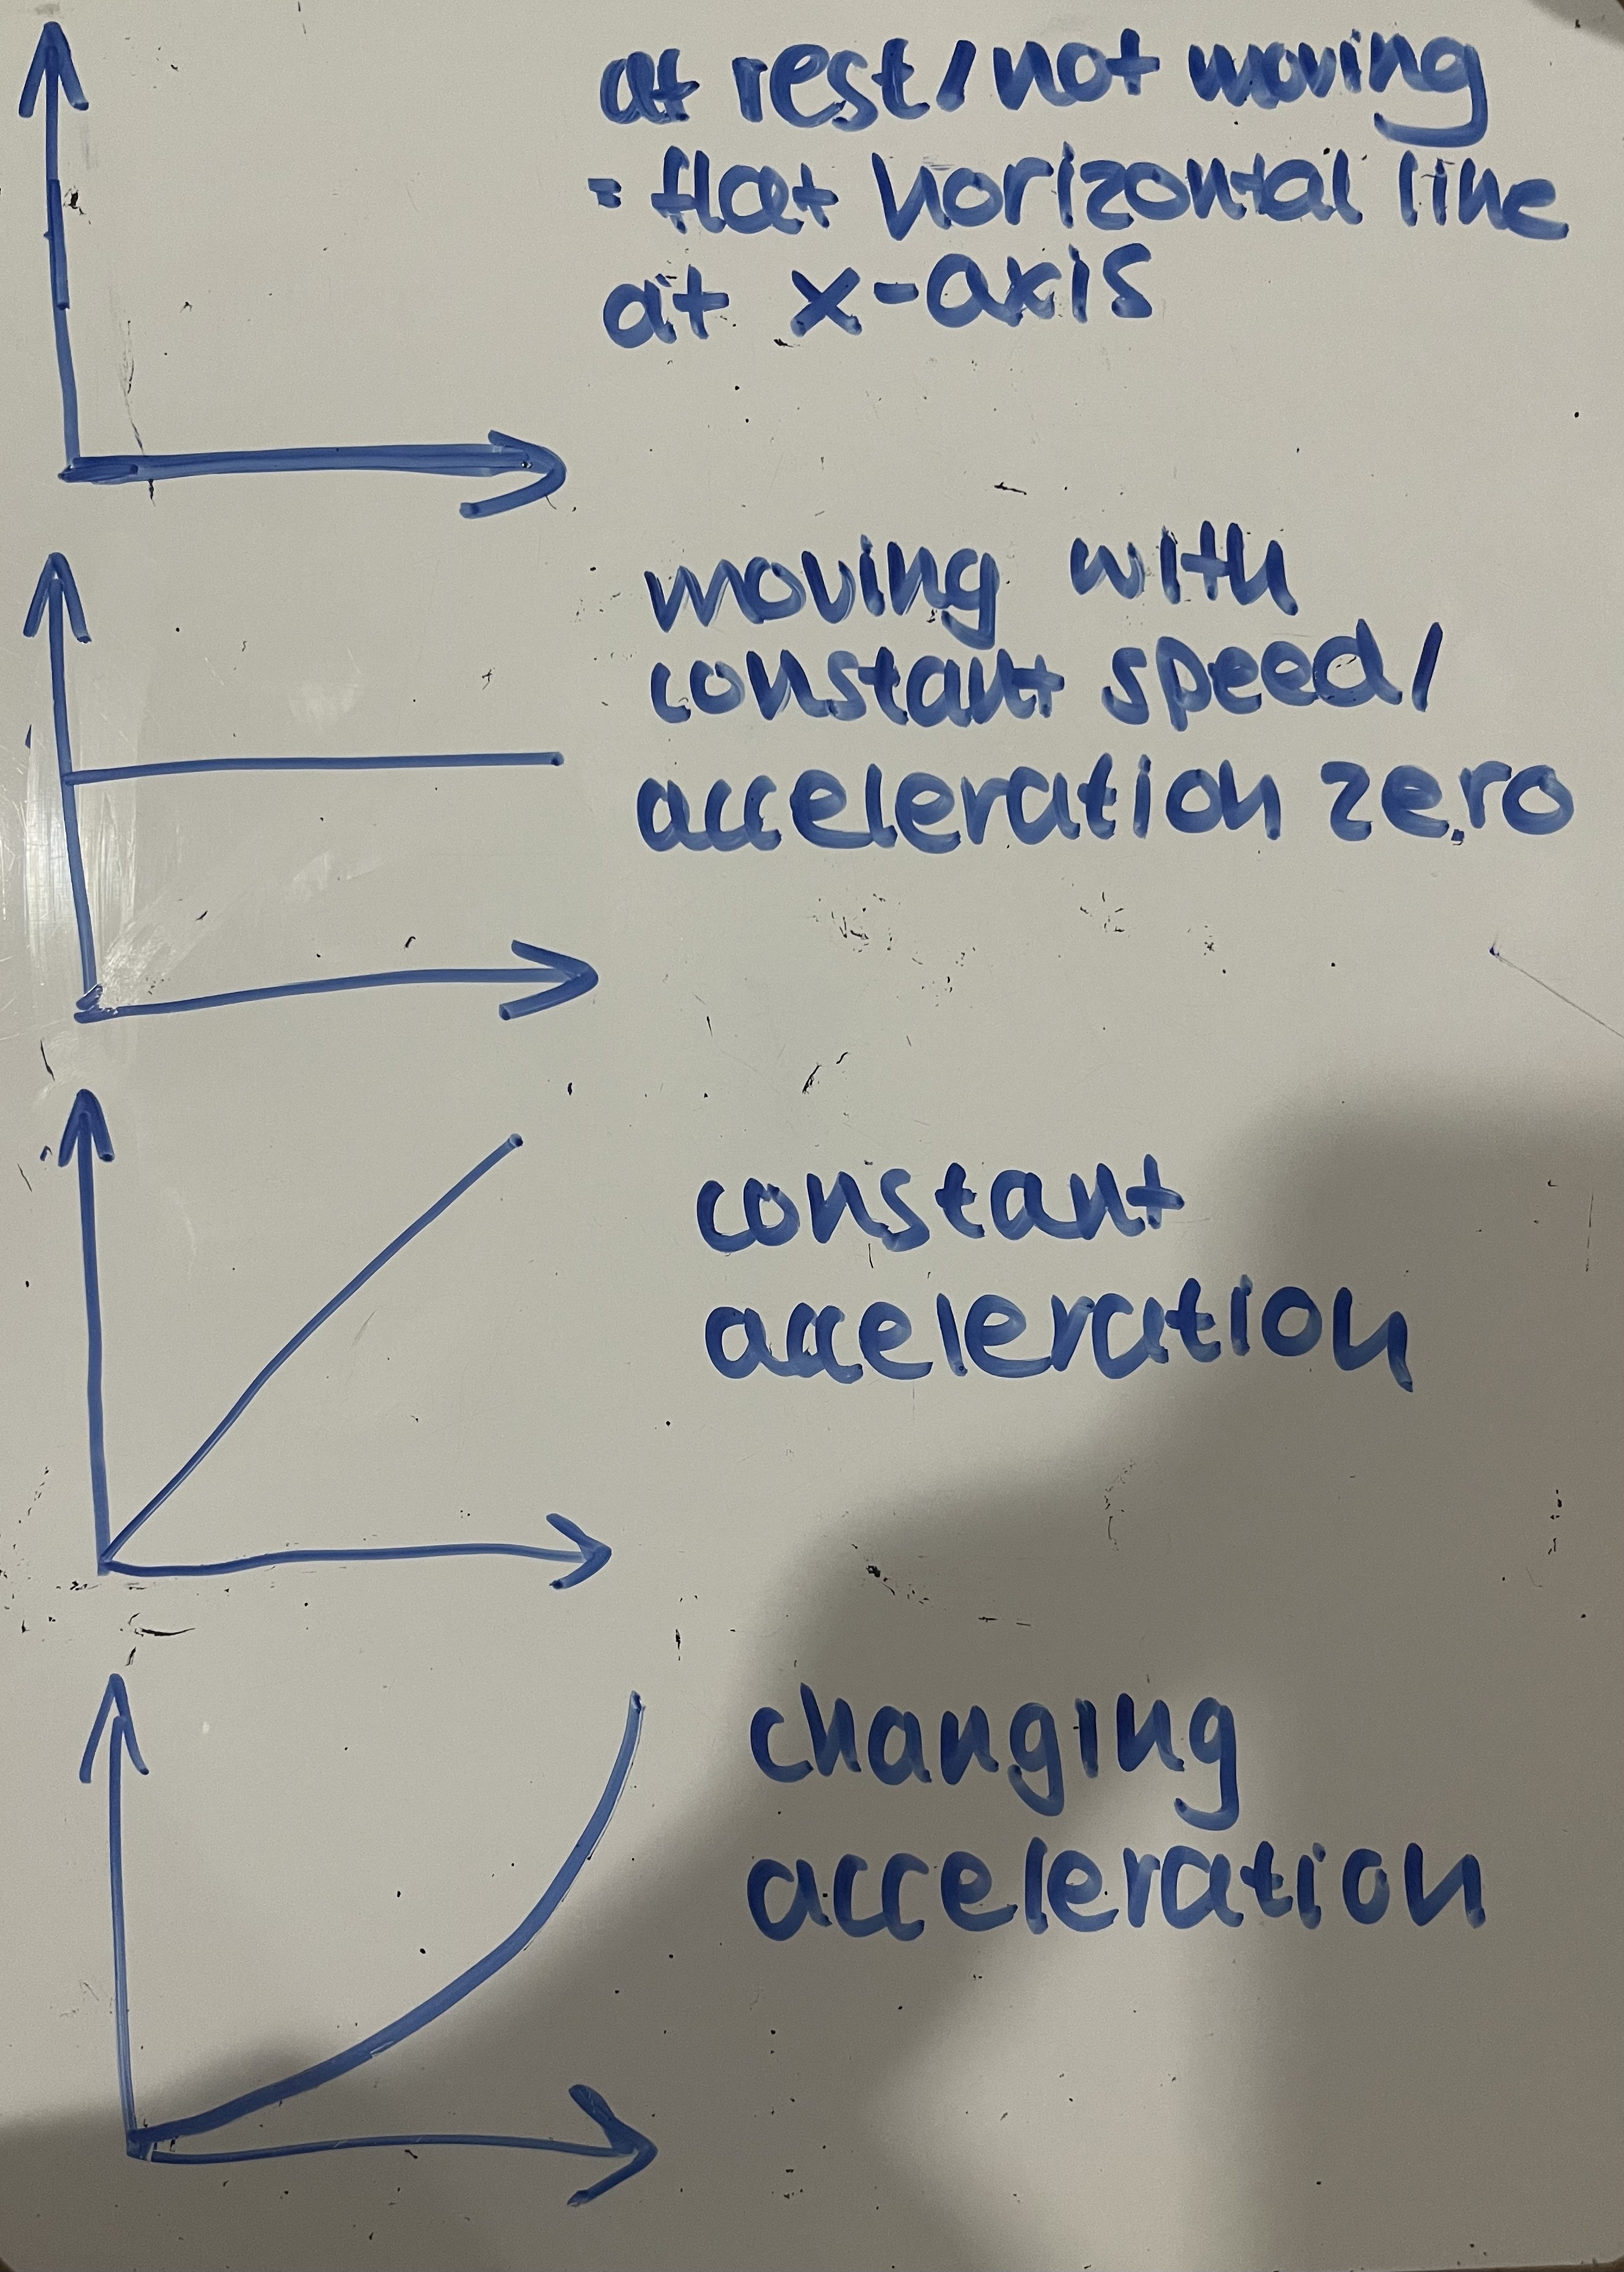 at rest/not moving
= flat horizontal line
at x-axis
moving with
constant speed/
acceleration zero
constant
acceleration
changing
acceleration